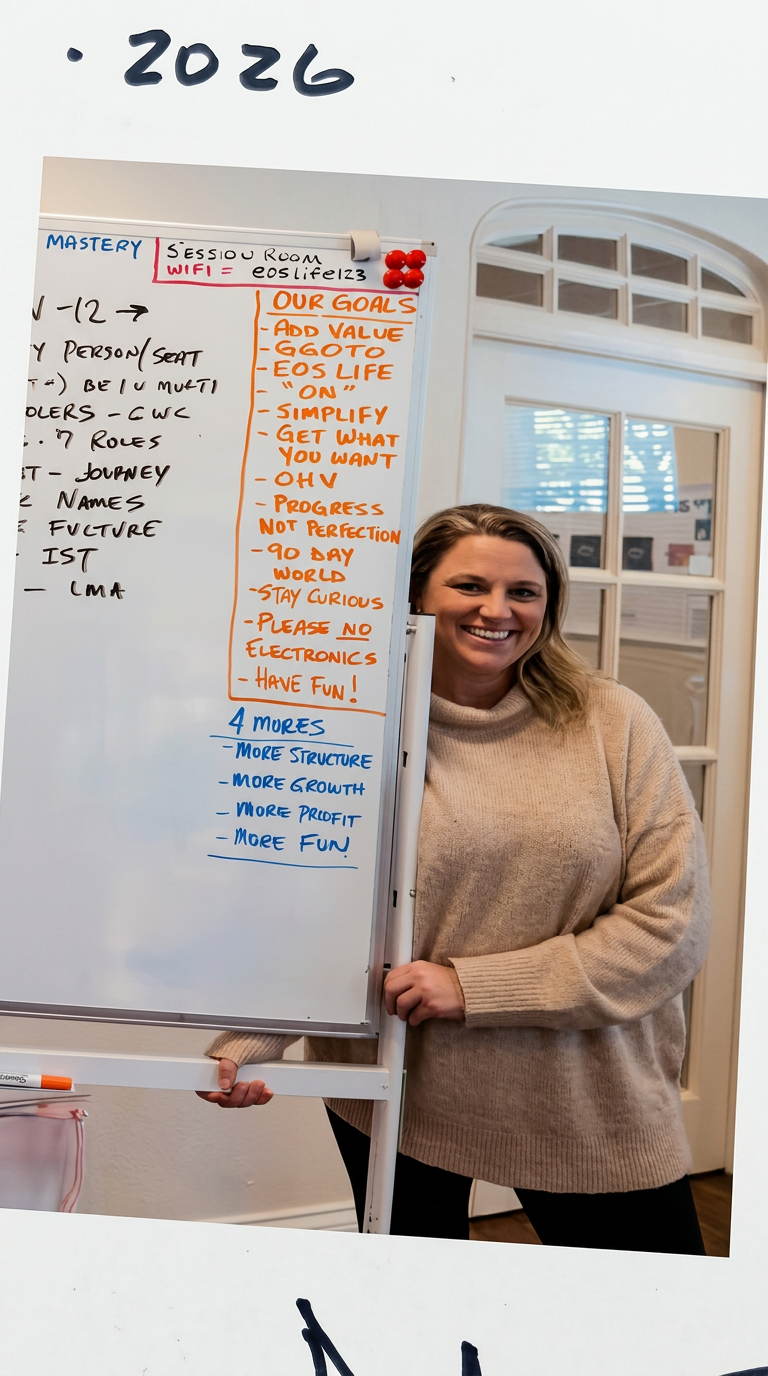 · 2026
MASTERY
SESSION ROOM
WIFI = eoslife123
-12 →
Y PERSON/SEAT
BE IU MULTI
OLERS - CWC
· 7 ROLES
ST - JOURNEY
NAMES
FUCTURE
IST
— LMA
OUR GOALS
- ADD VALUE
- GGOTO
- EOS LIFE
- "ON"
- SIMPLIFY
- GET WHAT
YOU WANT
- OHV
- PROGRESS
NOT PERFECTION
- 90 DAY
WORLD
- STAY CURIOUS
- PLEASE NO
ELECTRONICS
- HAVE FUN!
4 MORES
- MORE STRUCTURE
- MORE GROWTH
- MORE PROFIT
- MORE FUN!